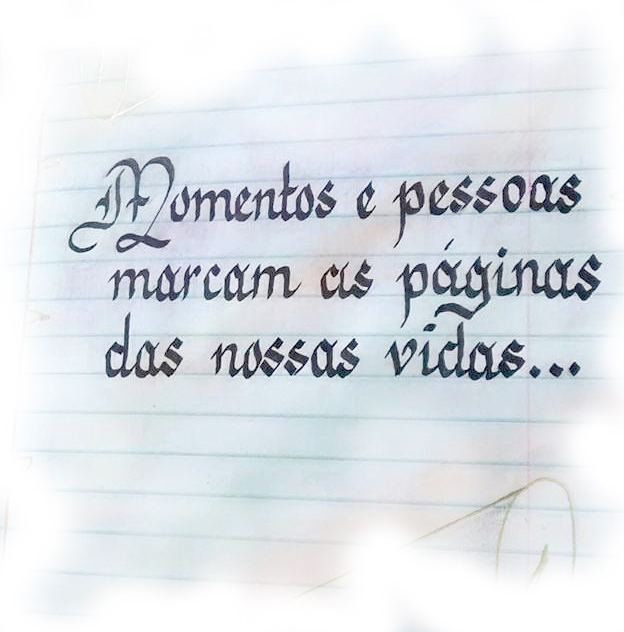 Momentos e pessoas
marcam as páginas
das nossas vidas...